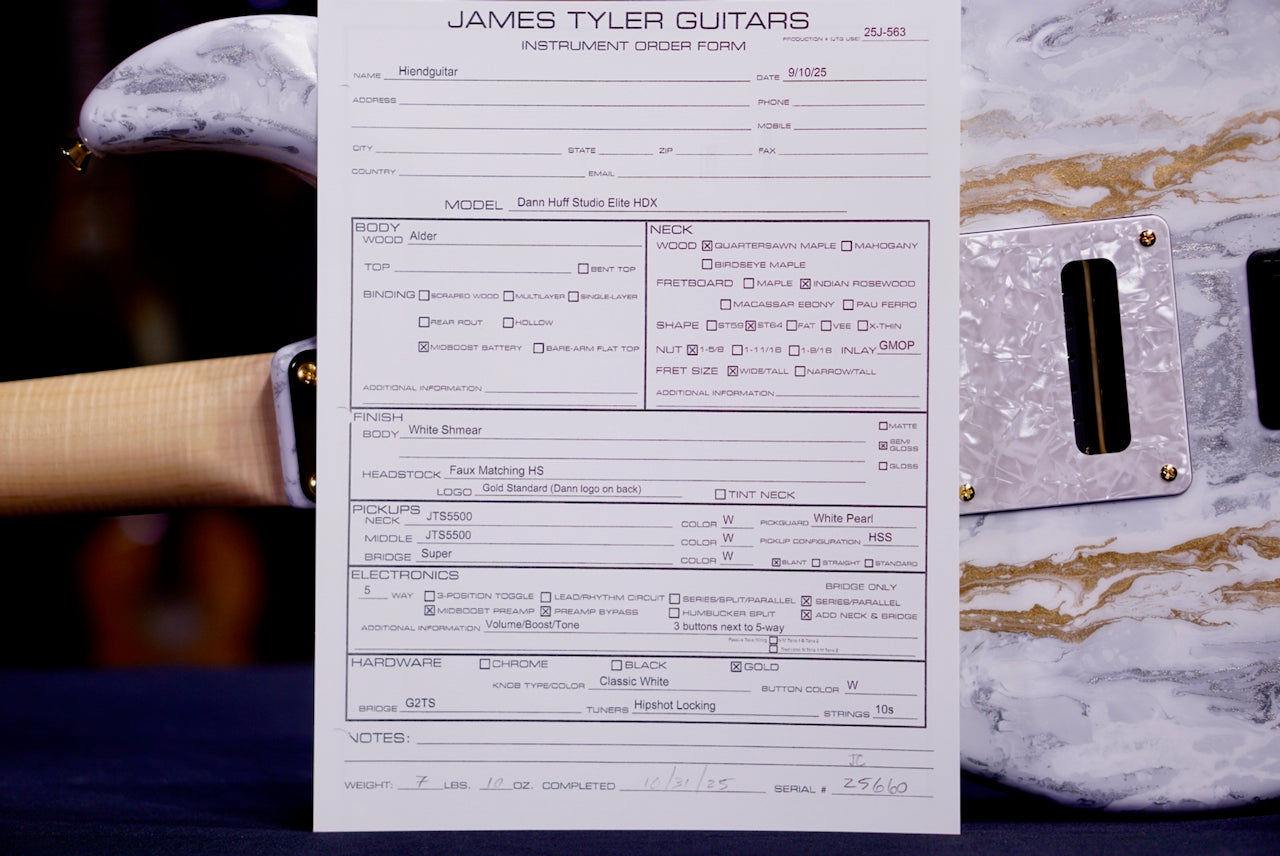 JAMES TYLER GUITARS
INSTRUMENT ORDER FORM
PRODUCTION # (JTG USE) 25J-563
NAME Hiendguitar DATE 9/10/25
ADDRESS PHONE
MOBILE
CITY STATE ZIP FAX
COUNTRY EMAIL
MODEL Dann Huff Studio Elite HDX
BODY
WOOD Alder
TOP ☐ BENT TOP
BINDING ☐ SCRAPED WOOD ☐ MULTILAYER ☐ SINGLE-LAYER
☐ REAR ROUT ☐ HOLLOW
☒ MIDBOOST BATTERY ☐ BARE-ARM FLAT TOP
ADDITIONAL INFORMATION
NECK
WOOD ☒ QUARTERSAWN MAPLE ☐ MAHOGANY
☐ BIRDSEYE MAPLE
FRETBOARD ☐ MAPLE ☒ INDIAN ROSEWOOD
☐ MACASSAR EBONY ☐ PAU FERRO
SHAPE ☐ ST59 ☒ ST64 ☐ FAT ☐ VEE ☐ X-THIN
NUT ☒ 1-5/8 ☐ 1-11/16 ☐ 1-9/16 INLAY GMOP
FRET SIZE ☒ WIDE/TALL ☐ NARROW/TALL
ADDITIONAL INFORMATION
FINISH
BODY White Shmear ☐ MATTE
☒ SEMI GLOSS
HEADSTOCK Faux Matching HS ☐ GLOSS
LOGO Gold Standard (Dann logo on back) ☐ TINT NECK
PICKUPS
NECK JTS5500 COLOR W PICKGUARD White Pearl
MIDDLE JTS5500 COLOR W PICKUP CONFIGURATION HSS
BRIDGE Super COLOR W ☒ SLANT ☐ STRAIGHT ☐ STANDARD
ELECTRONICS BRIDGE ONLY
5 WAY ☐ 3-POSITION TOGGLE ☐ LEAD/RHYTHM CIRCUIT ☐ SERIES/SPLIT/PARALLEL ☒ SERIES/PARALLEL
☒ MIDBOOST PREAMP ☒ PREAMP BYPASS ☐ HUMBUCKER SPLIT ☒ ADD NECK & BRIDGE
ADDITIONAL INFORMATION Volume/Boost/Tone 3 buttons next to 5-way
HARDWARE ☐ CHROME ☐ BLACK ☒ GOLD
KNOB TYPE/COLOR Classic White BUTTON COLOR W
BRIDGE G2TS TUNERS Hipshot Locking STRINGS 10s
NOTES:
JC
WEIGHT: 7 LBS. 10 OZ. COMPLETED 10/31/25 SERIAL # 25660